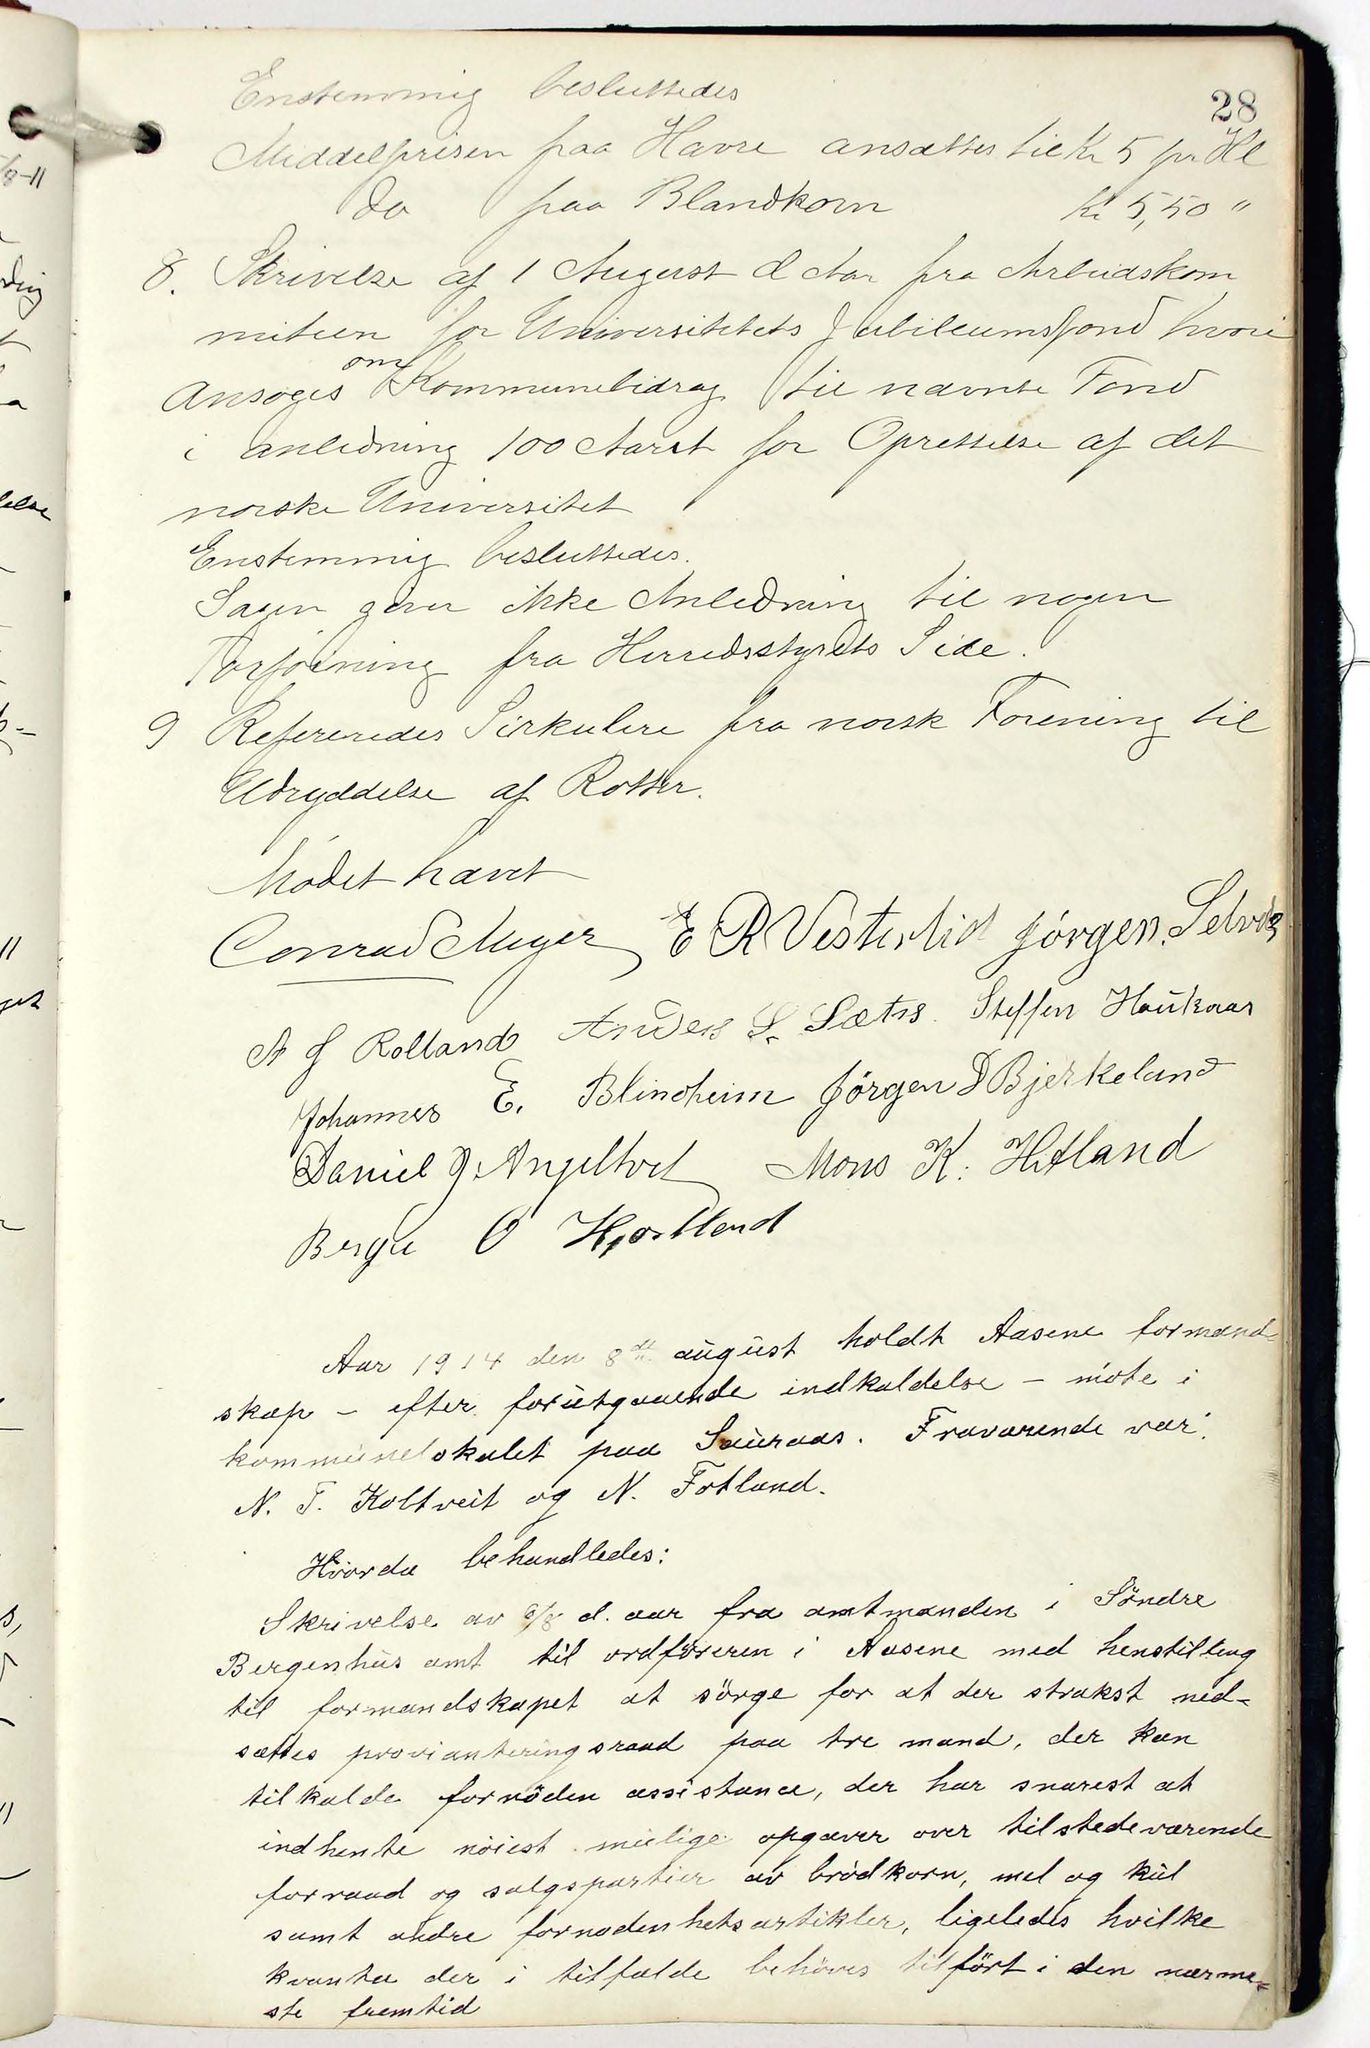 28
Enstemmig besluttedes
Middelprisen paa Havre ansættes til Kr 5 pr Hl
do paa Blandkorn Kr 5,50 "
8. Skrivelse af 1 August d Aar fra Arbeidskom
miteen for Universitetets Jubileumsfond hvori
ansøges om Kommunebidrag til nævnte Fond
i anledning 100 Aaret for Oprettelse af det
norske Universitet
Enstemmig besluttedes.
Sagen giver ikke Anledning til nogen
Forføining fra Herredsstyrets Side.
9 Refereredes Sirkulere fra norsk Forening til
Udryddelse af Rotter.
Mødet hævet
Conrad Meyer E R Vesterlid Jörgen Selvik
A J Rolland Anders L. Sætre Steffen Haukaas
Johannes E. Blindheim Jörgen D Bjerkeland
Daniel J. Angeltvet Mons K. Hitland
Berge O Hjortland
Aar 1914 den 8de august holdt Aasene formand-
skap - efter forutgaaende indkaldelse - möte i
kommunelokalet paa Sauraas. Fraværende var:
N. T. Koltveit og N. Fotland.
Hvorda behandledes:
Skrivelse av 6/8 d. aar fra amtmanden i Söndre
Bergenhus amt til ordföreren i Aasene med henstilling
til formandskapet at sörge for at der strakst ned-
sættes provianteringsraad paa tre mand, der kan
tilkalde fornöden assistance, der har snarest at
indhente nöiest mulige opgaver over tilstedeværende
forraad og salgspartier av brödkorn, mel og kul
samt andre fornødenhetsartikler, ligeledes hvilke
kvanta der i tilfælde behöves tilfört i den nærme-
ste fremtid